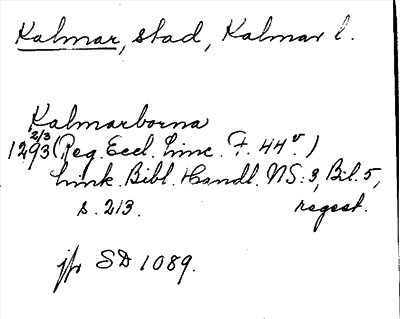 Kalmar, stad, Kalmar l.
Kalmarborna
2/3
1293 (Reg. Eccl. Linc. F. 44v.)
Link. Bibl. Handl. NS: 3, Bil. 5,
s. 213. regest.
jfr SD 1089.